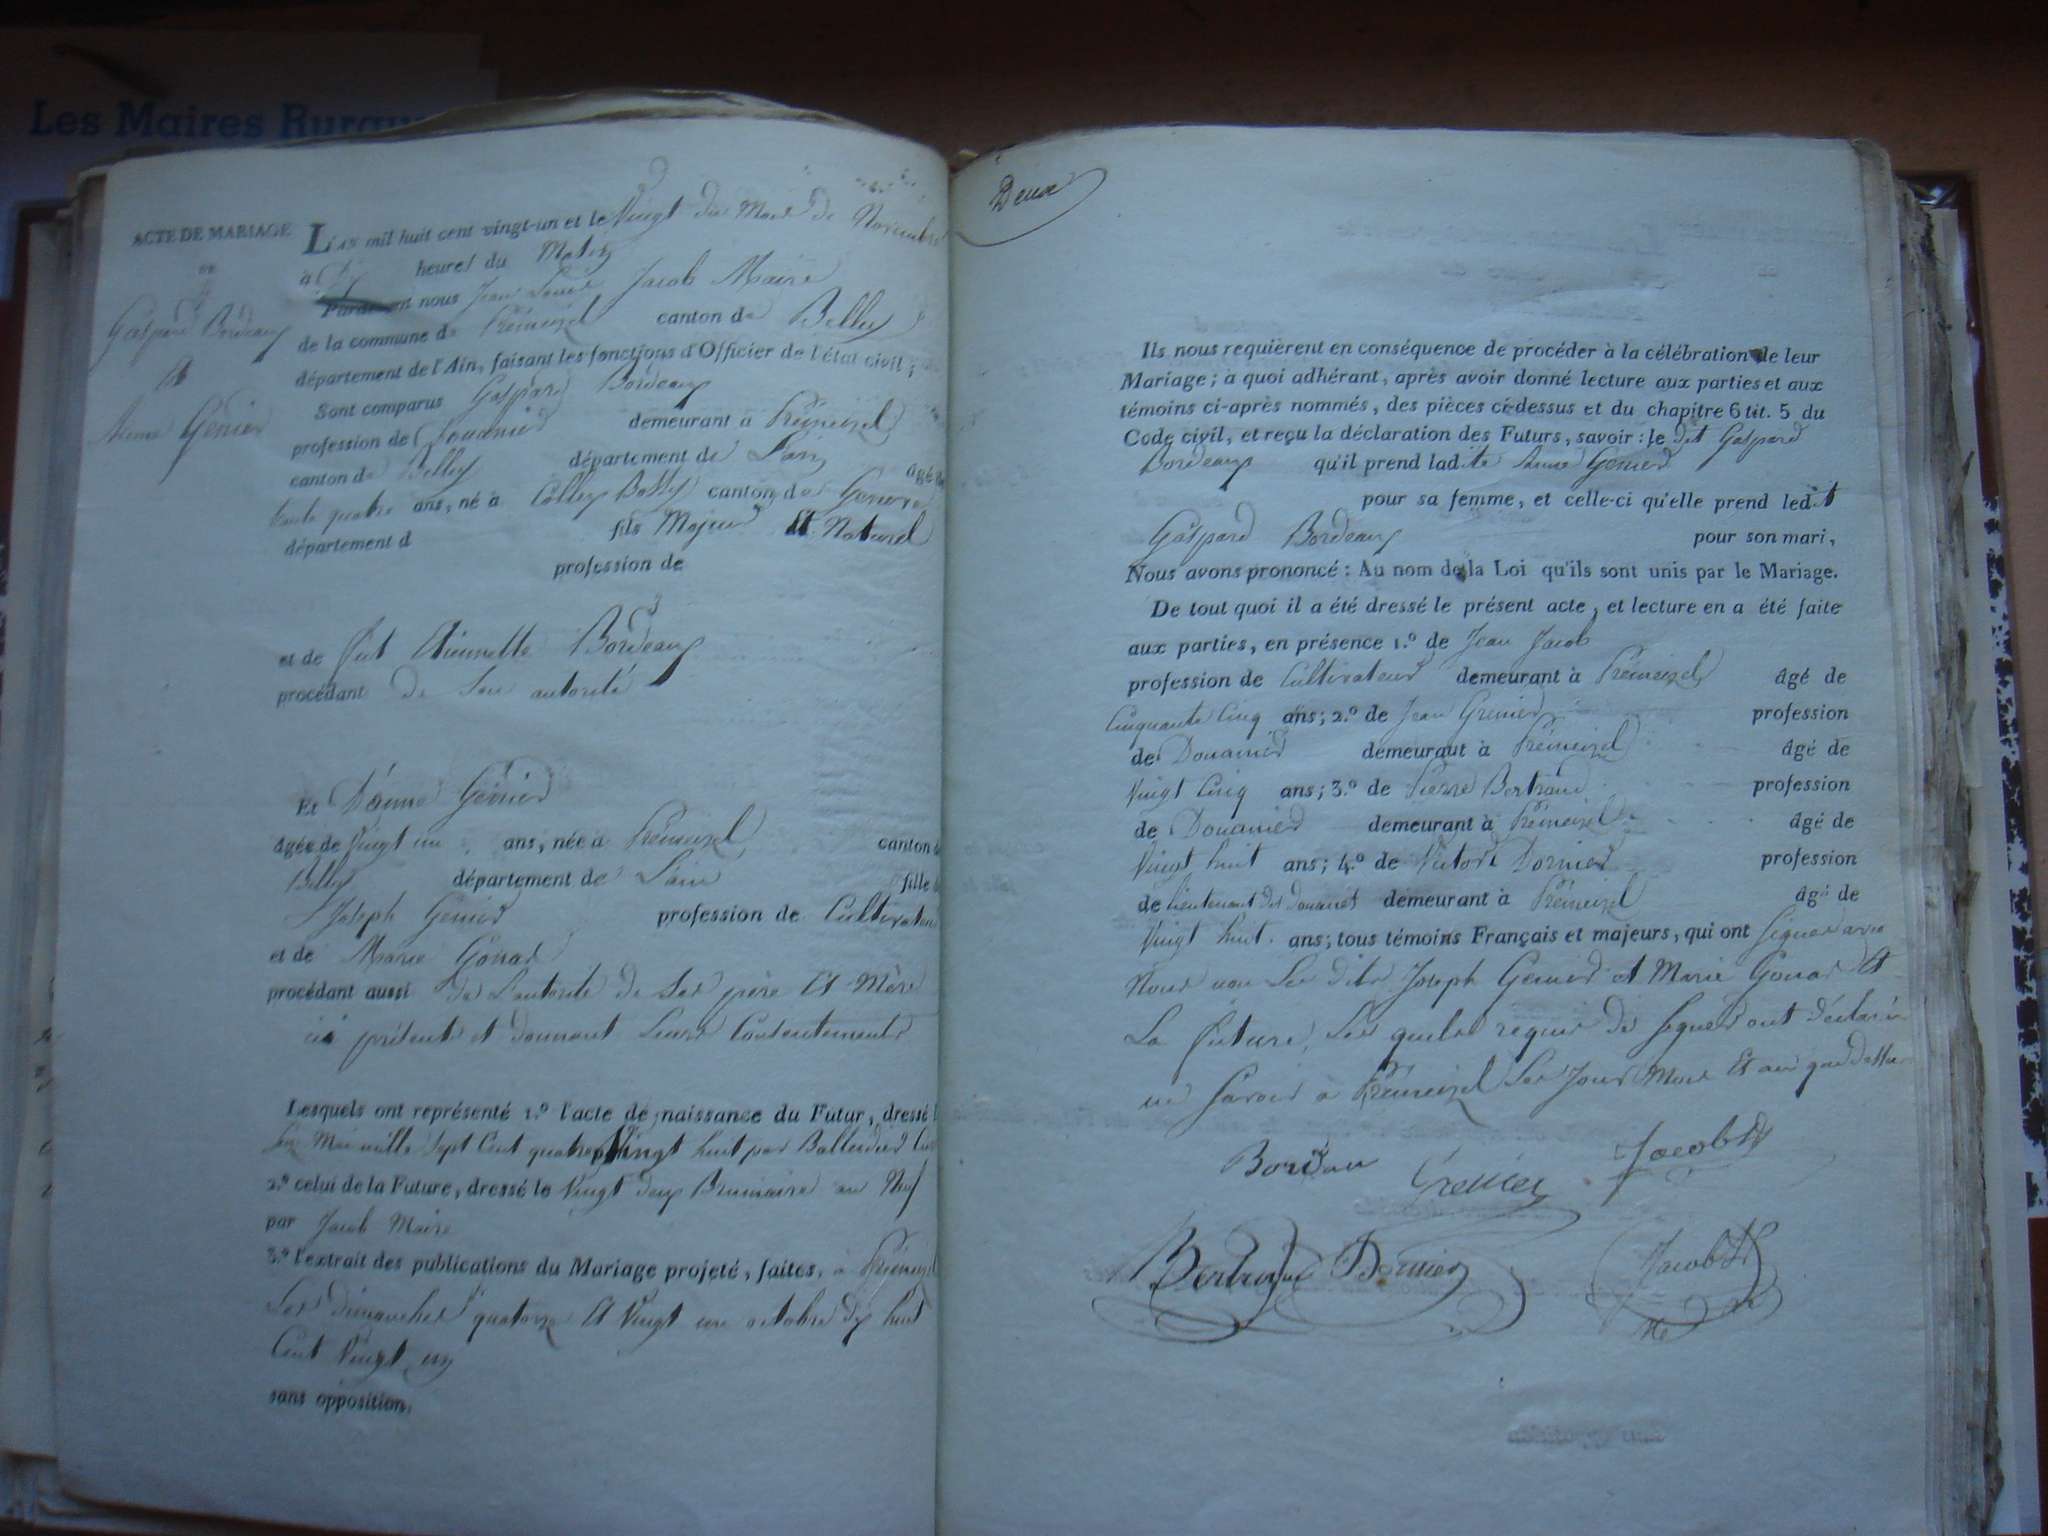 Les Maires Ruraux
ACTE DE MARIAGE
DE
Gaspard Bordeaux
Et
Anne Génier
L'AN mil huit cent vingt-un et le Vingt du Mois de Novembre
à Dix heures du Matin
Pardevant nous Jean Louis Jacob Maire
de la commune de Prémeizel canton de Belley
département de l'Ain, faisant les fonctions d'Officier de l'état civil;
Sont comparus Gaspard Bordeaux
profession de Douanier demeurant à Prémeizel
canton de Belley département de L'ain âgé de
trente quatre ans, né à Colley Bossy canton de Genève
département d fils Majeur Et Naturel
profession de
et de fut Etiennette Bordeaux
procédant de Son autorité
Et D'anne Génier
âgée de Vingt un ans, née à Prémeizel canton de
Belley département de L'ain fille de
Joseph Génier profession de Cultivateur
et de Marie Gonar
procédant aussi de L'autorité de Ses père Et Mère
ici présents et donnant Leurs Consentements
Lesquels ont représenté 1.º l'acte de naissance du Futur, dressé le
Mai mille Sept Cent quatre Vingt huit par
2.º celui de la Future, dressé le Vingt deux Brumaire an Neuf
par Jacob Maire
3.º l'extrait des publications du Mariage projeté, faites, à Prémeizel
Les dimanches quatorze Et Vingt un octobre dix huit
Cent Vingt un
sans opposition.
Deux
Ils nous requièrent en conséquence de procéder à la célébration de leur
Mariage; à quoi adhérant, après avoir donné lecture aux parties et aux
témoins ci-après nommés, des pièces ci-dessus et du chapitre 6 tit. 5 du
Code civil, et reçu la déclaration des Futurs, savoir: le dit Gaspard
Bordeaux qu'il prend ladite Anne Génier
pour sa femme, et celle-ci qu'elle prend ledit
Gaspard Bordeaux pour son mari,
Nous avons prononcé: Au nom de la Loi qu'ils sont unis par le Mariage.
De tout quoi il a été dressé le présent acte, et lecture en a été faite
aux parties, en présence 1.º de Jean Jacob
profession de Cultivateur demeurant à Prémeizel âgé de
Cinquante Cinq ans; 2.º de Jean Grenier profession
de Douanier demeurant à Prémeizel âgé de
Vingt Cinq ans; 3.º de Pierre Bertrand profession
de Douanier demeurant à Prémeizel âgé de
Vingt huit ans; 4.º de Victor Dornier profession
de Lieutenant des Douanes demeurant à Prémeizel âgé de
Vingt huit ans; tous témoins Français et majeurs, qui ont Signés avec
Nous non Les dits Joseph Génier et Marie Gonar Et
La future, Les quels requis de Signer ont déclaré
ne Savoir à Prémeizel Les Jour Mois Et an que dessus
Bordeau Grenier Jacob
Bertrand Dornier Jacob